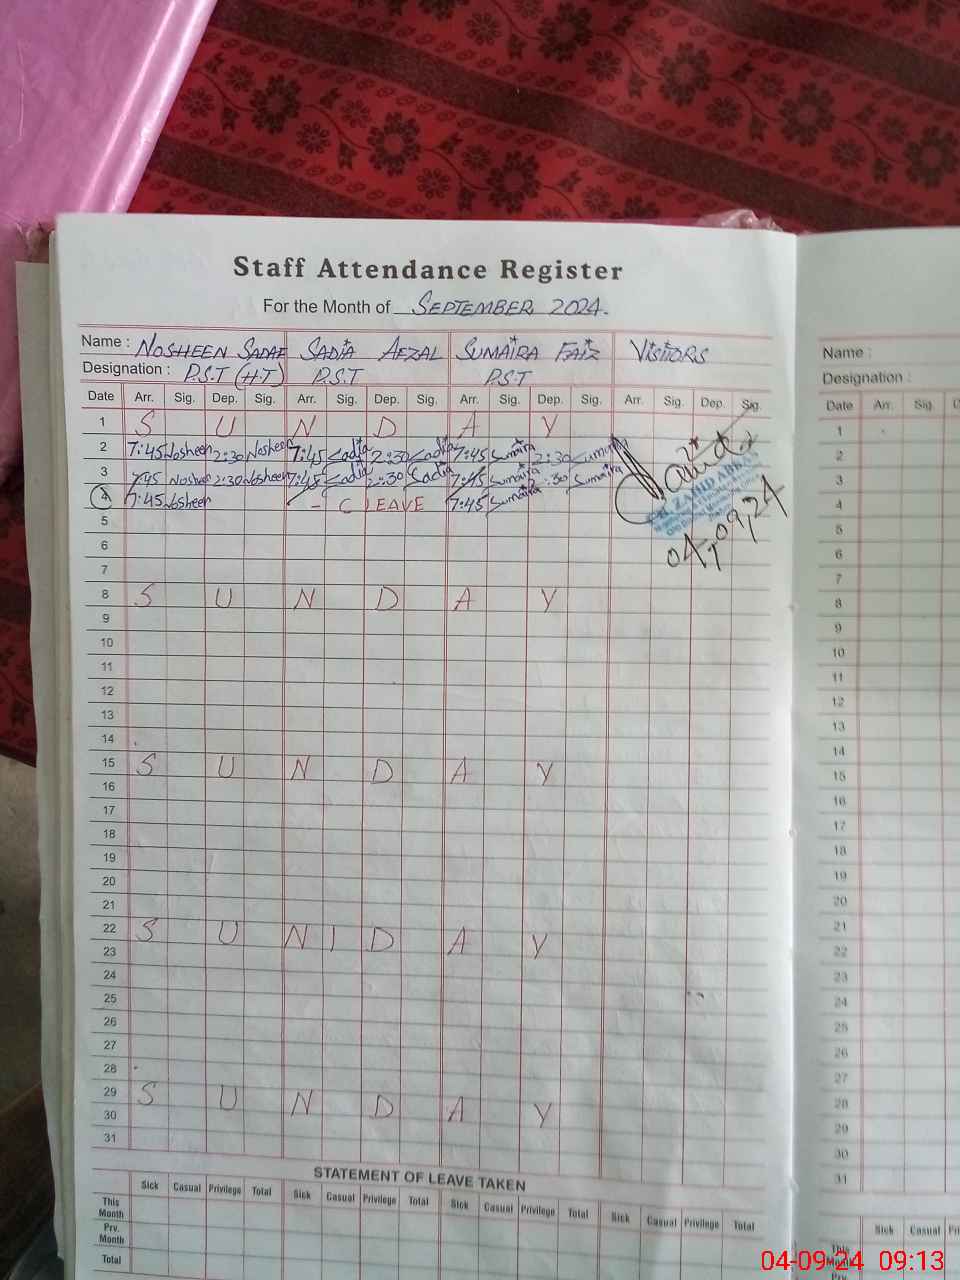 Staff Attendance Register
For the Month of SEPTEMBER 2024.
Name : NOSHEEN SADAF SADIA AFZAL SUMAIRA FAIZ VISITORS
Designation : P.S.T (H.T) P.S.T P.S.T
Date Arr. Sig. Dep. Sig. Arr. Sig. Dep. Sig. Arr. Sig. Dep. Sig. Arr. Sig. Dep. Sig.
1 S U N D A Y
2 7:45 Nosheen 2:30 Nosheen 7:45 Sadia 2:30 Sadia 7:45 Sumaira 2:30 Sumaira
3 7:45 Nosheen 2:30 Nosheen 7:45 Sadia 2:30 Sadia 7:45 Sumaira 2:30 Sumaira
4 7:45 Nosheen - C LEAVE 7:45 Sumaira
ZAHID ABBAS
04,09,24
5
6
7
8 S U N D A Y
9
10
11
12
13
14
15 S U N D A Y
16
17
18
19
20
21
22 S U N D A Y
23
24
25
26
27
28
29 S U N D A Y
30
31
STATEMENT OF LEAVE TAKEN
Sick Casual Privilege Total Sick Casual Privilege Total Sick Casual Privilege Total Sick Casual Privilege Total
This Month
Prv. Month
Total
Name :
Designation :
Date Arr. Sig.
1
2
3
4
5
6
7
8
9
10
11
12
13
14
15
16
17
18
19
20
21
22
23
24
25
26
27
28
29
30
31
Sick Casual
This Month
04-09-24 09:13